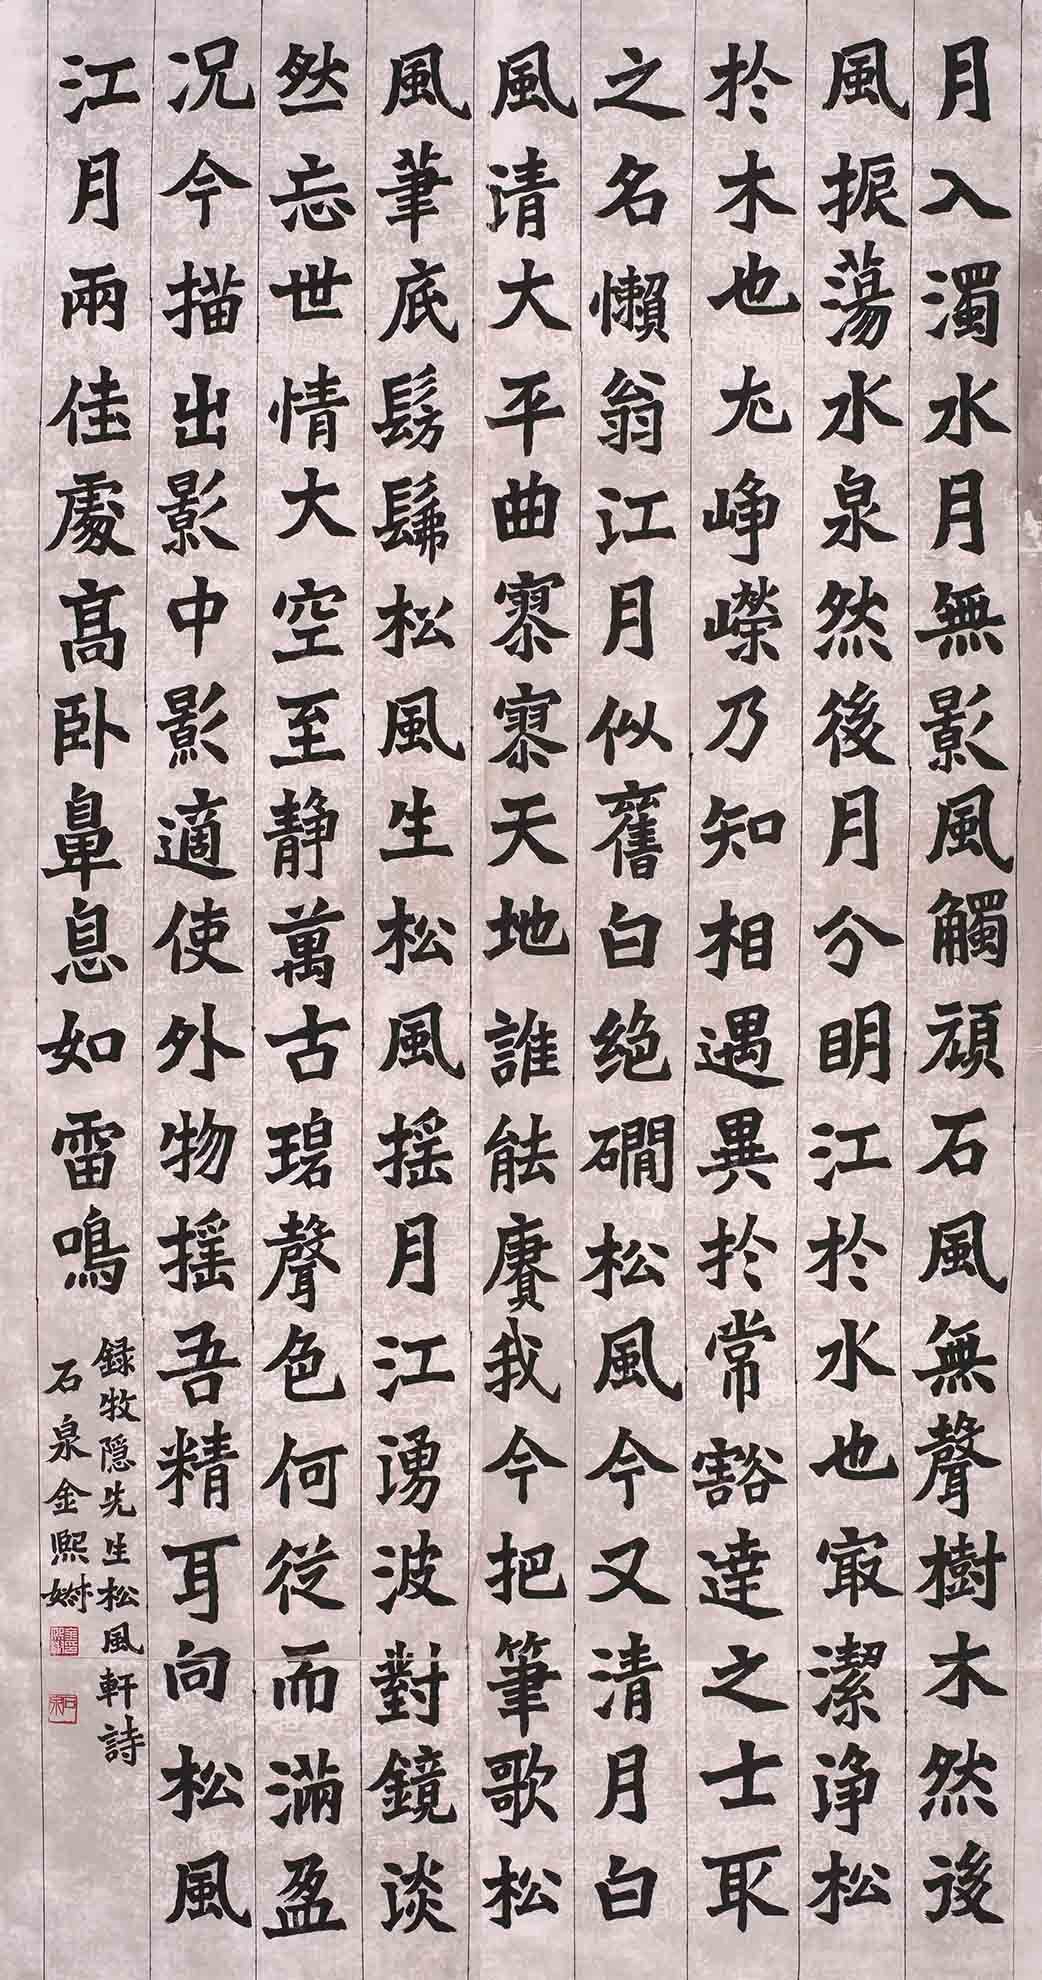 月入濁水月無影風觸頑石風無聲樹木然後
風振蕩水泉然後月分明江於水也最潔淨松
於木也尤崢嶸乃知相遇異於常豁達之士取
之名懶翁江月似舊白絶磵松風今又清月白
風清大平曲寥寥天地誰能賡我今把筆歌松
風筆底髣髴松風生松風搖月江湧波對鏡談
然忘世情大空至静萬古碧聲色何從而滿盈
况今描出影中影適使外物摇吾精耳向松風
江月兩佳處髙卧鼻息如雷鳴
録牧隠先生松風軒詩
石泉金熙